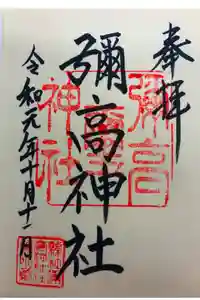 奉拝
彌高神社
令和元年十月十一日
彌高
神社